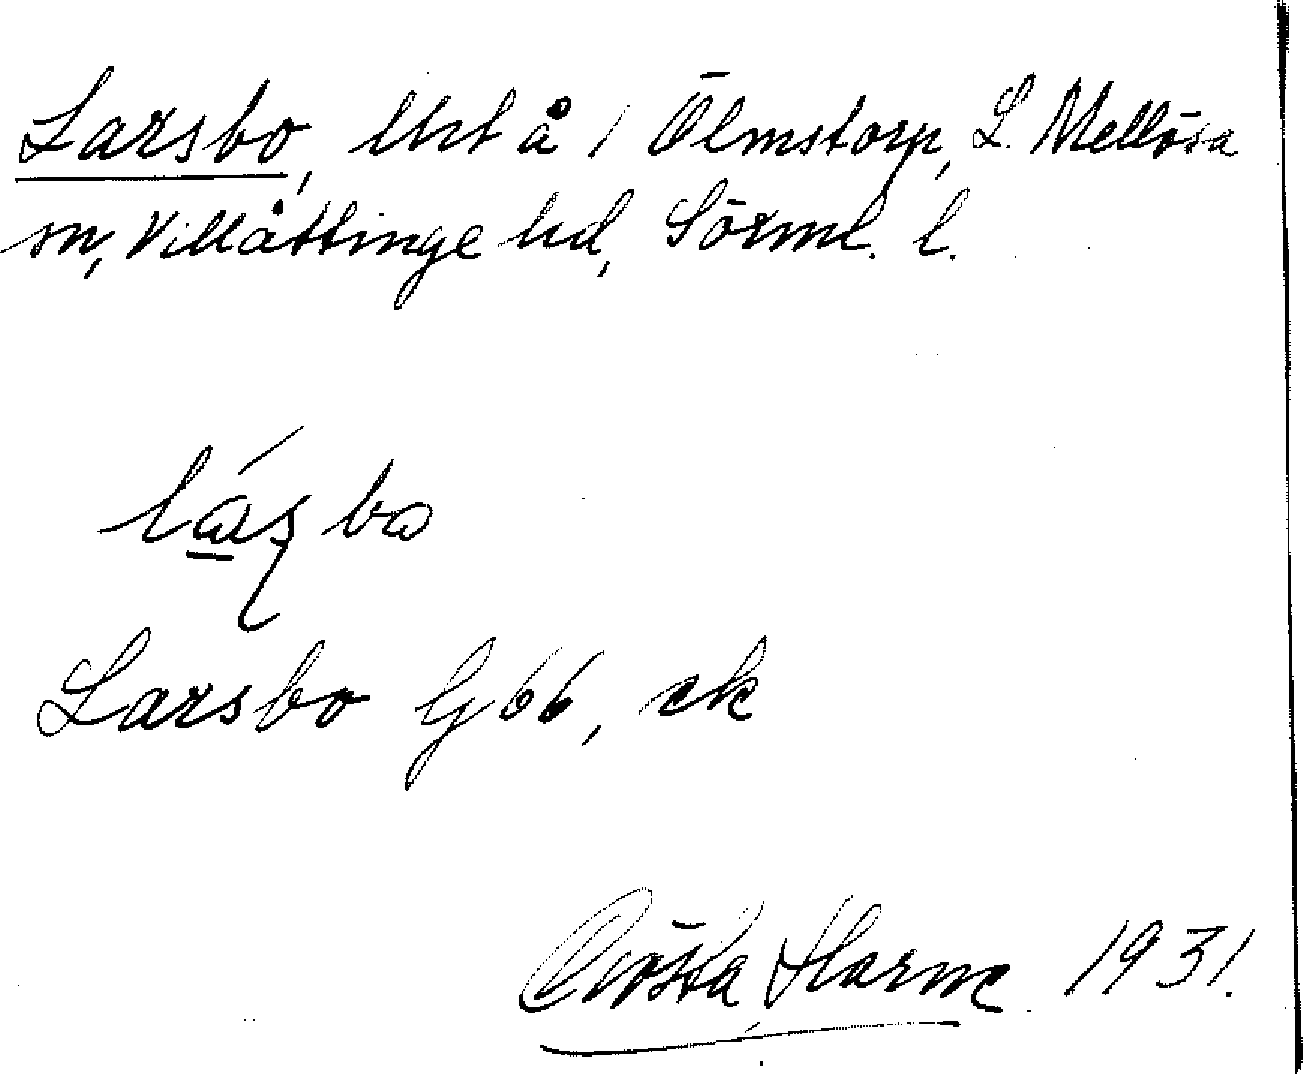 Larsbo, lht å 1 Ölmstorp, L. Mellösa
sn, Villåttinge hd, Sörml. l.
láşbo
Larsbo G66, ek
Gösta Harne 1931.